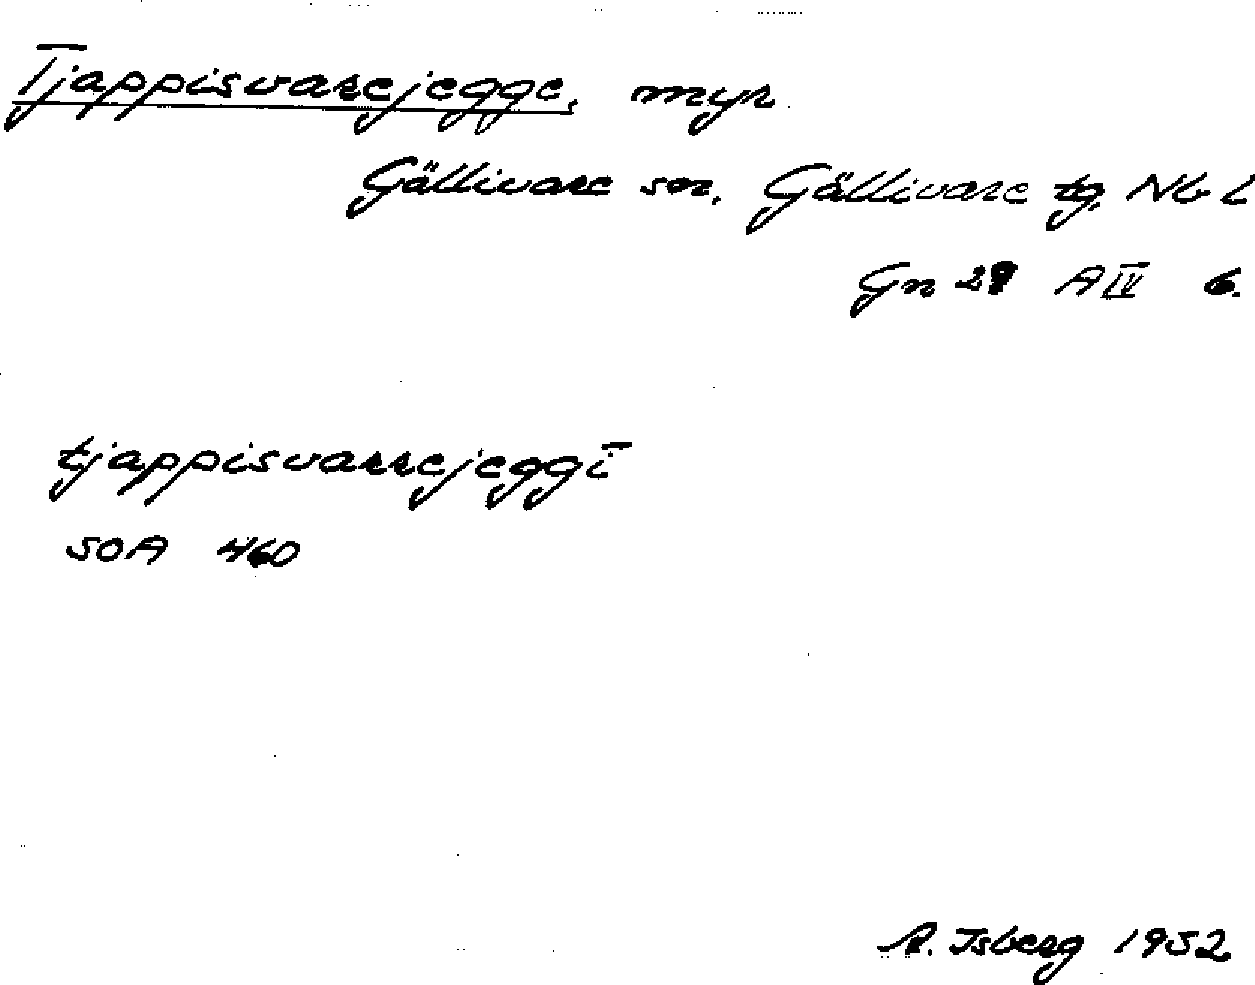 Tjappisvarejegge, myr
Gällivare sn, Gällivare tg, Nb L
Gn 28 A IV 6.
tjappisvarrejeggī
SOA 460
A. Isberg 1952